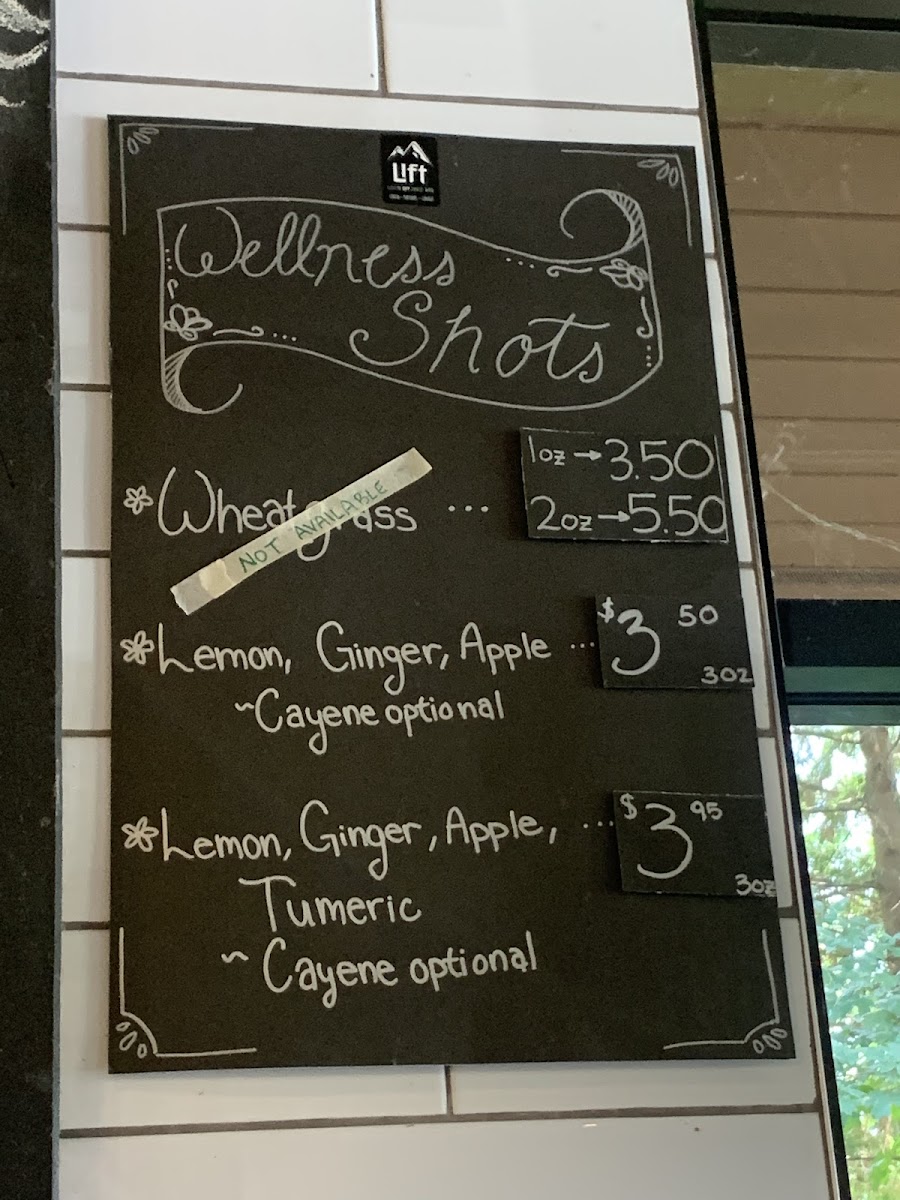 Lift
Wellness
Shots
Wheatgrass ... 1oz → 3.50
NOT AVAILABLE
2oz → 5.50
Lemon, Ginger, Apple ... $3 50
3oz
~Cayene optional
Lemon, Ginger, Apple, ... $3 95
3oz
Tumeric
~ Cayene optional